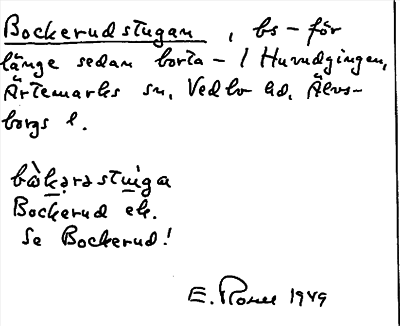 Bockerudstugan, bs – för
länge sedan borta – / Huvudgingen,
Ärtemarks sn, Vedbo hd, Älvs-
borgs l.
bàkərəstuiga
Bockerud ek.
Se Bockerud!
E. 1949